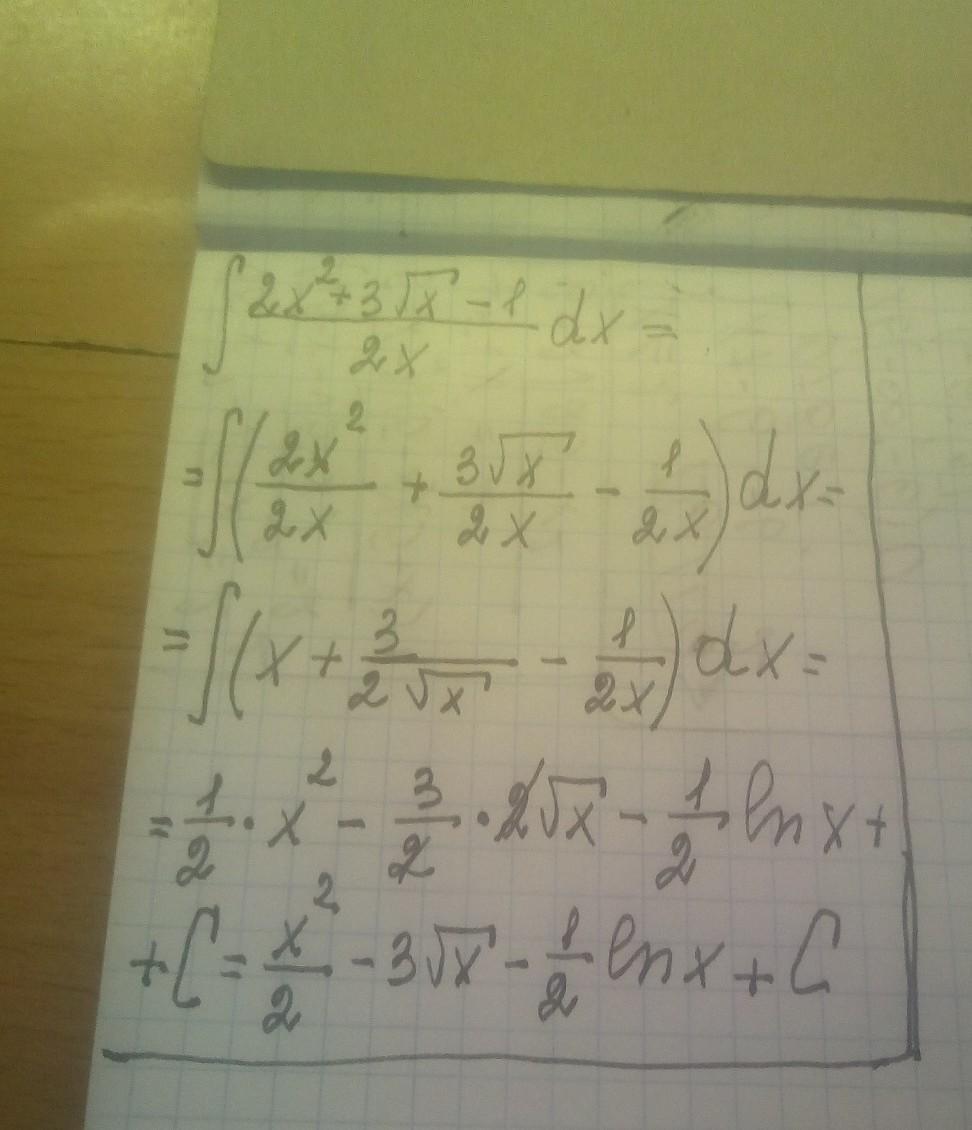 ∫ (2x²+3√x −1)/(2x) dx =
=∫(2x²/(2x) + 3√x/(2x) − 1/(2x)) dx=
=∫(x + 3/(2√x) − 1/(2x)) dx=
=1/2·x² − 3/2·2√x − 1/2 ln x+
+C= x²/2 −3√x − 1/2 ln x + C